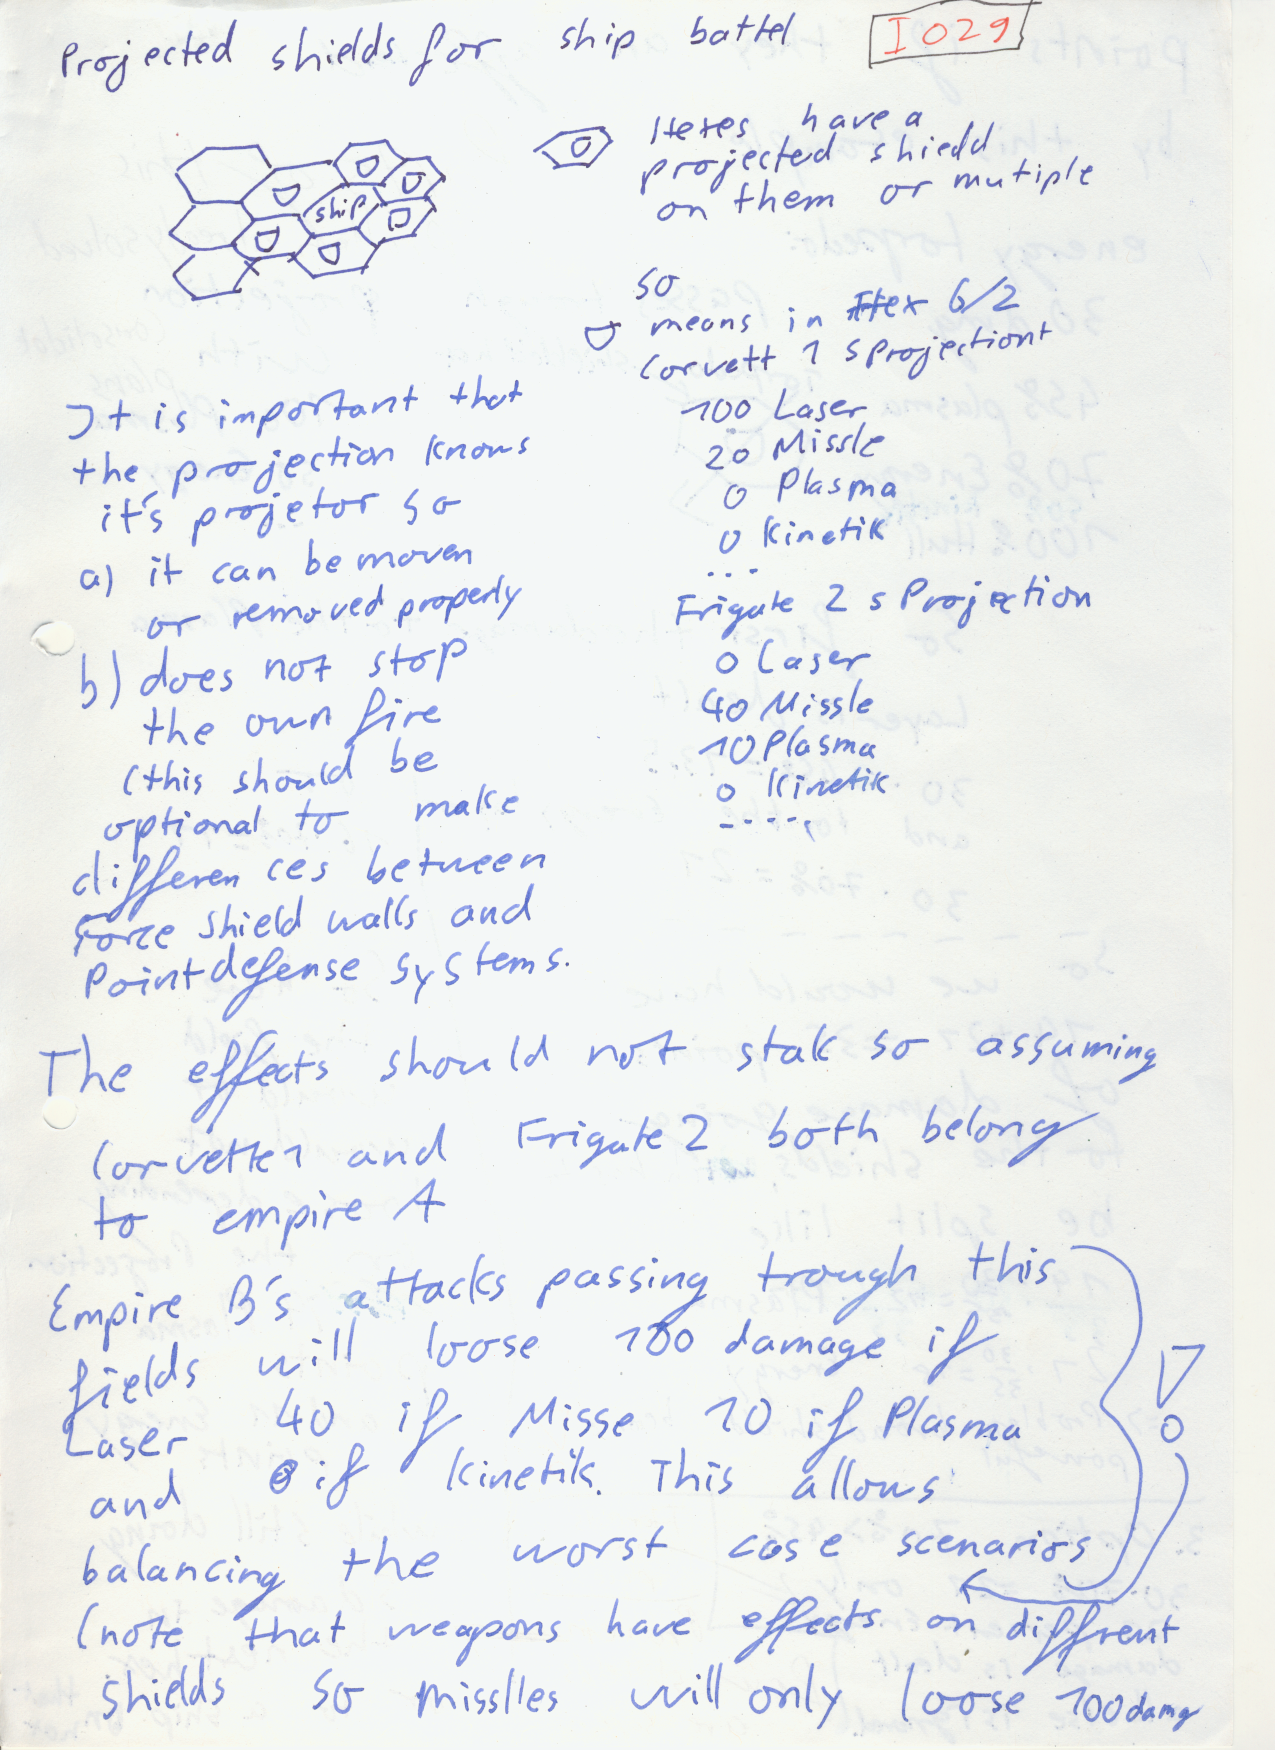 Projected shields for ship battel
I029
Hexes have a
projected shield
on them or mutiple
ship
so
means in Hex 6/2
Corvett 1 s Projectiont
100 Laser
20 Missle
0 Plasma
0 Kinetik
...
Frigate 2 s Projection
0 Laser
40 Missle
10 Plasma
0 Kinetik
.....
It is important that
the projection knows
it's projetor so
a) it can be moven
or removed properly
b) does not stop
the own fire
(this should be
optional to make
differences between
Force shield walls and
Pointdefense systems.
The effects should not stak so assuming
Corvette 1 and Frigate 2 both belong
to empire A
Empire B's attacks passing trough this
fields will loose 100 damage if
Laser 40 if Misse 10 if Plasma
and 0 if kinetik. This allows
balancing the worst case scenarios
(note that weapons have effects on diffrent
shields so misslles will only loose 100 damg